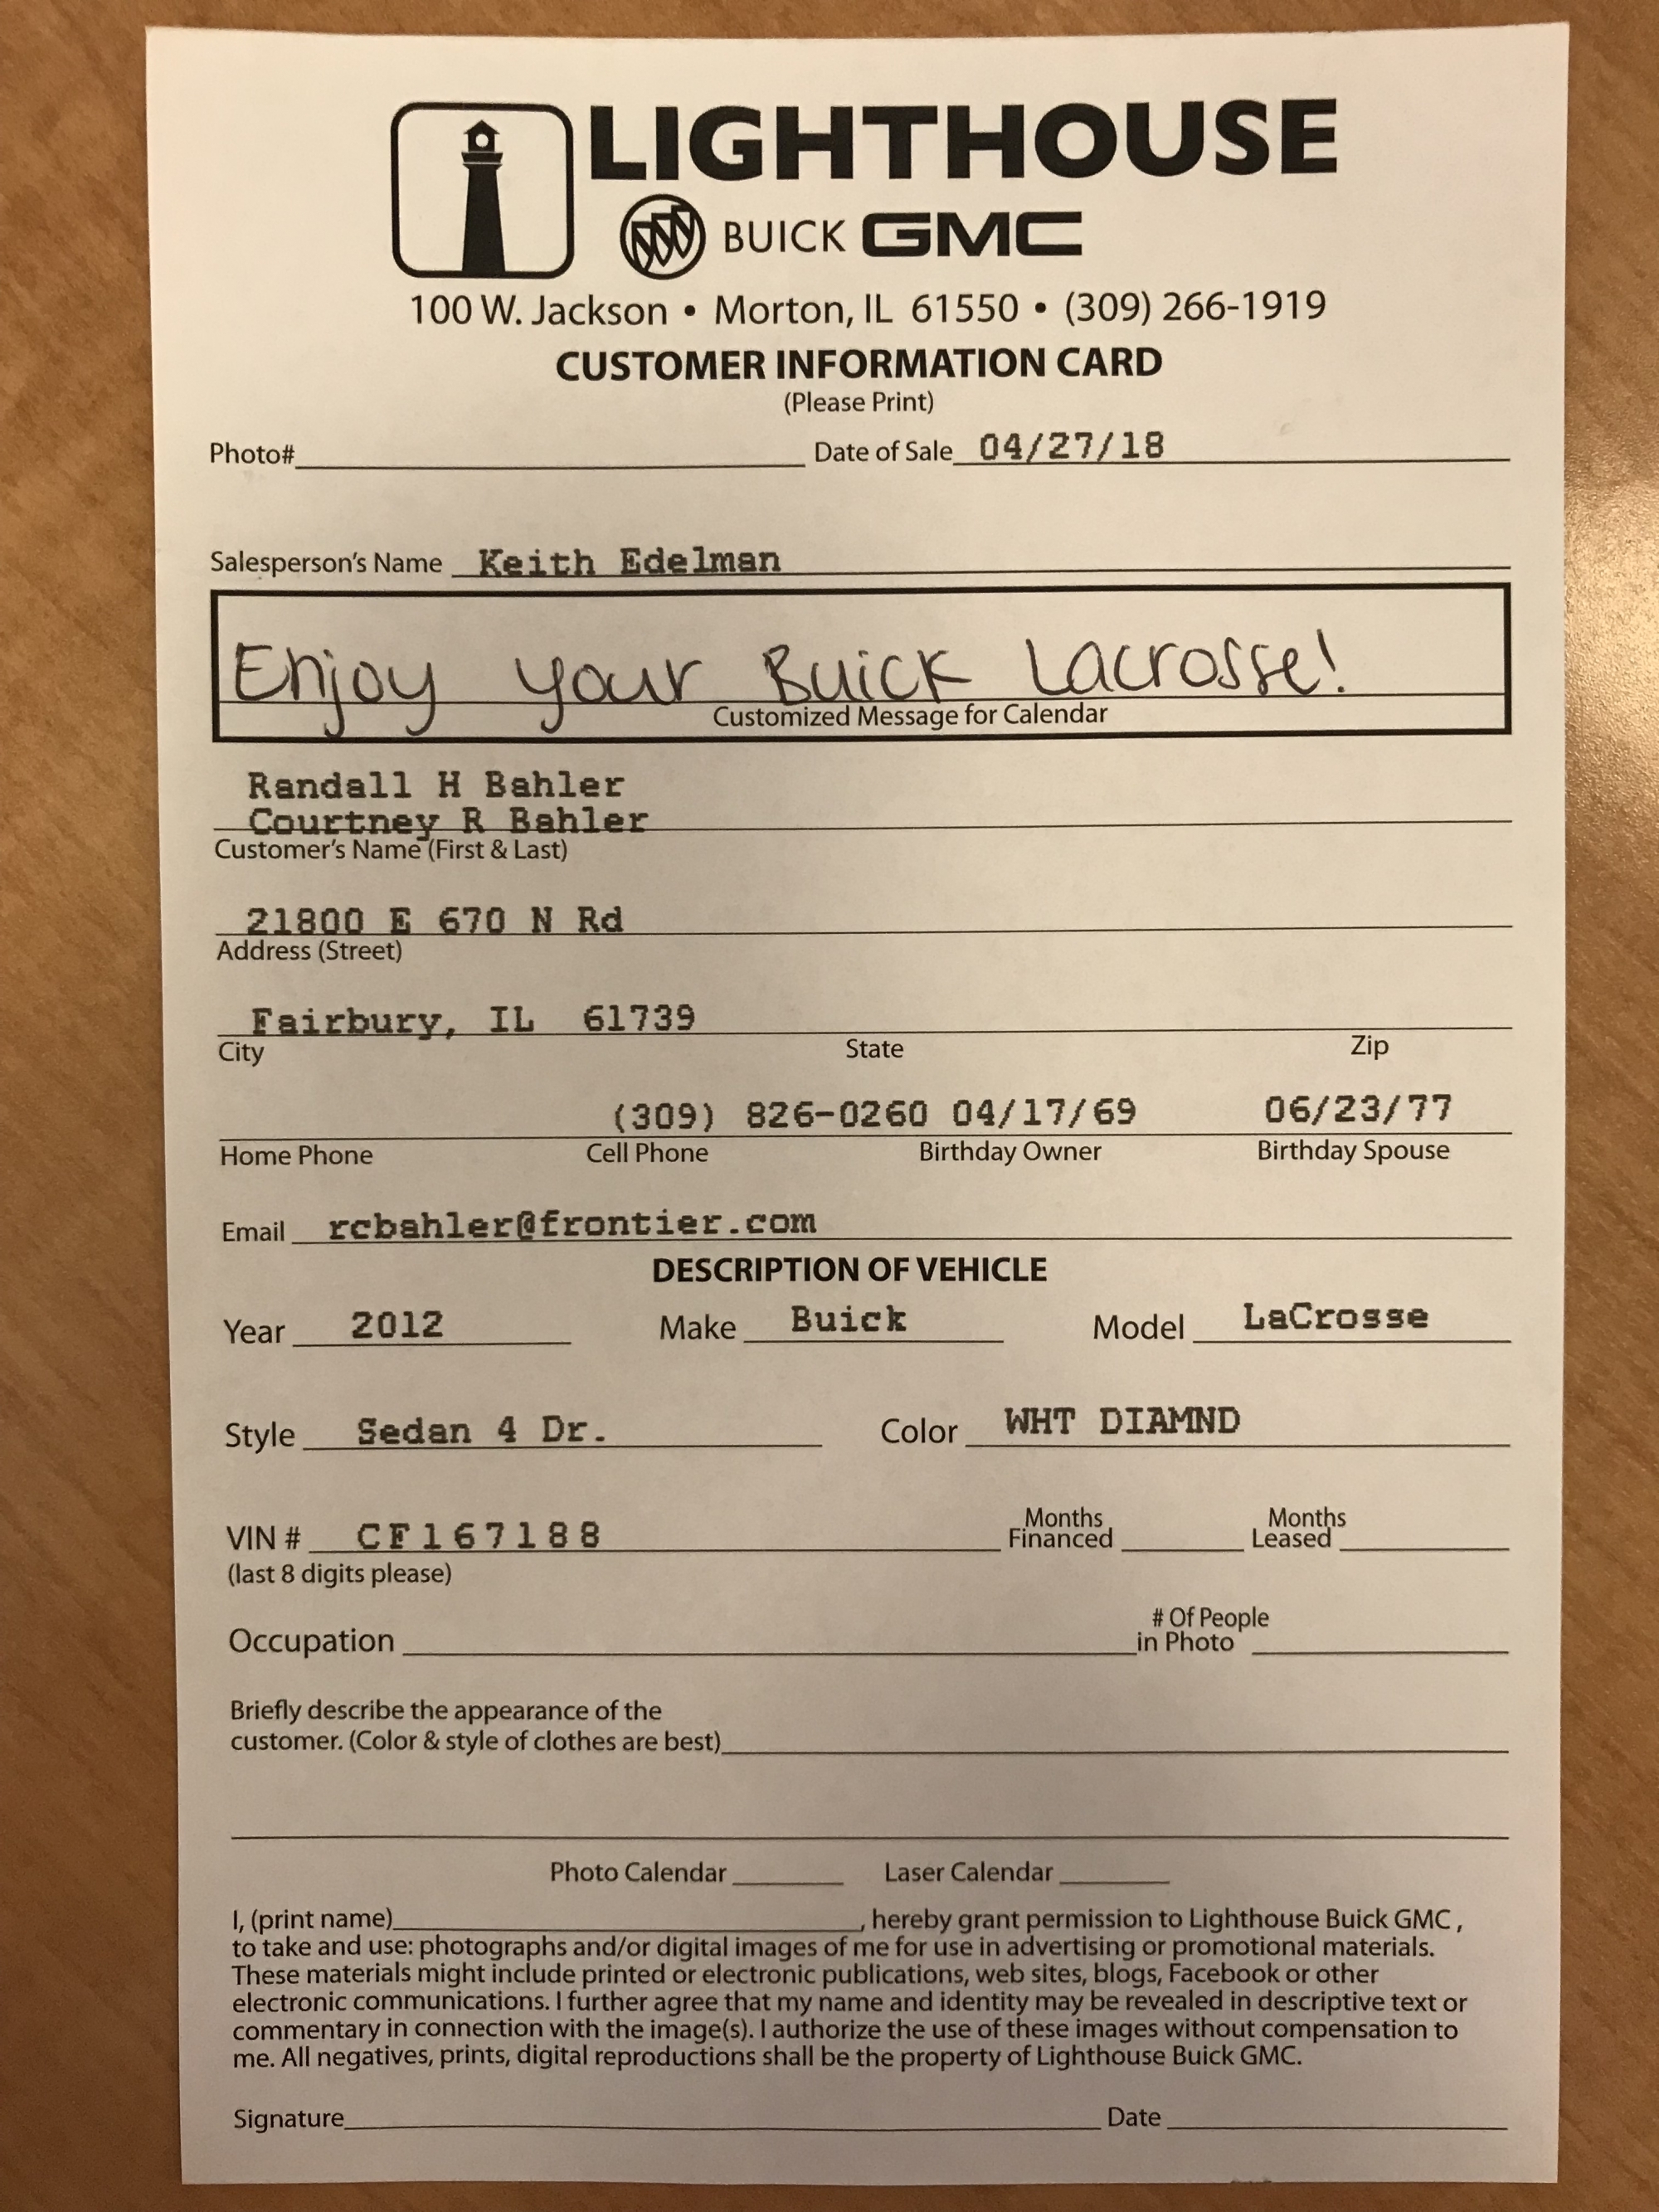 LIGHTHOUSE
BUICK GMC
100 W. Jackson • Morton, IL 61550 • (309) 266-1919
CUSTOMER INFORMATION CARD
(Please Print)
Photo# Date of Sale 04/27/18
Salesperson's Name Keith Edelman
Enjoy your Buick Lacrosse!
Customized Message for Calendar
Randall H Bahler
Courtney R Bahler
Customer's Name (First & Last)
21800 E 670 N Rd
Address (Street)
Fairbury, IL 61739
City State Zip
(309) 826-0260 04/17/69 06/23/77
Home Phone Cell Phone Birthday Owner Birthday Spouse
Email rcbahler@frontier.com
DESCRIPTION OF VEHICLE
Year 2012 Make Buick Model LaCrosse
Style Sedan 4 Dr. Color WHT DIAMND
Months Months
VIN # CF167188 Financed Leased
(last 8 digits please)
# Of People
Occupation in Photo
Briefly describe the appearance of the
customer. (Color & style of clothes are best)
Photo Calendar Laser Calendar
I, (print name) , hereby grant permission to Lighthouse Buick GMC ,
to take and use: photographs and/or digital images of me for use in advertising or promotional materials.
These materials might include printed or electronic publications, web sites, blogs, Facebook or other
electronic communications. I further agree that my name and identity may be revealed in descriptive text or
commentary in connection with the image(s). I authorize the use of these images without compensation to
me. All negatives, prints, digital reproductions shall be the property of Lighthouse Buick GMC.
Signature Date